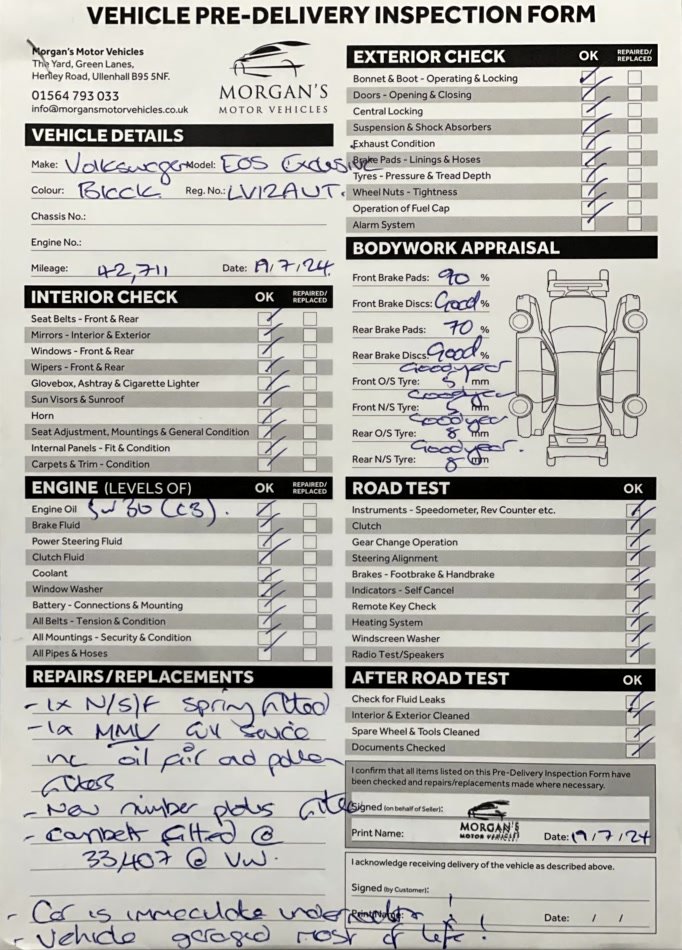 VEHICLE PRE-DELIVERY INSPECTION FORM
Morgan's Motor Vehicles
The Yard, Green Lanes,
Henley Road, Ullenhall B95 5NF.
01564 793 033
info@morgansmotorvehicles.co.uk
MORGAN'S
MOTOR VEHICLES
VEHICLE DETAILS
Make: Volkswagen Model: EOS Exclusive
Colour: Black Reg. No.: LV12AUT.
Chassis No.:
Engine No.:
Mileage: 42,711 Date: 19/7/24.
INTERIOR CHECK OK REPAIRED/REPLACED
Seat Belts - Front & Rear
Mirrors - Interior & Exterior
Windows - Front & Rear
Wipers - Front & Rear
Glovebox, Ashtray & Cigarette Lighter
Sun Visors & Sunroof
Horn
Seat Adjustment, Mountings & General Condition
Internal Panels - Fit & Condition
Carpets & Trim - Condition
ENGINE (LEVELS OF) OK REPAIRED/REPLACED
Engine Oil 5w30 (C3).
Brake Fluid
Power Steering Fluid
Clutch Fluid
Coolant
Window Washer
Battery - Connections & Mounting
All Belts - Tension & Condition
All Mountings - Security & Condition
All Pipes & Hoses
REPAIRS/REPLACEMENTS
- 1x N/S/F spring fitted
- 1x MMV full service
inc oil air and pollen
filters
- New number plates fitted
- Cambelt fitted @
33,407 @ VW.
- Car is immaculate underneath
- Vehicle garaged most of life!
EXTERIOR CHECK OK REPAIRED/REPLACED
Bonnet & Boot - Operating & Locking
Doors - Opening & Closing
Central Locking
Suspension & Shock Absorbers
Exhaust Condition
Brake Pads - Linings & Hoses
Tyres - Pressure & Tread Depth
Wheel Nuts - Tightness
Operation of Fuel Cap
Alarm System
BODYWORK APPRAISAL
Front Brake Pads: 90 %
Front Brake Discs: Good %
Rear Brake Pads: 70 %
Rear Brake Discs: Good %
Goodyear
Front O/S Tyre: 5 mm
Goodyear
Front N/S Tyre: 5 mm
Goodyear
Rear O/S Tyre: 8 mm
Goodyear.
Rear N/S Tyre: 8 mm
ROAD TEST OK
Instruments - Speedometer, Rev Counter etc.
Clutch
Gear Change Operation
Steering Alignment
Brakes - Footbrake & Handbrake
Indicators - Self Cancel
Remote Key Check
Heating System
Windscreen Washer
Radio Test/Speakers
AFTER ROAD TEST OK
Check for Fluid Leaks
Interior & Exterior Cleaned
Spare Wheel & Tools Cleaned
Documents Checked
I confirm that all items listed on this Pre-Delivery Inspection Form have
been checked and repairs/replacements made where necessary.
Signed (on behalf of Seller):
MORGAN'S
MOTOR VEHICLES
Print Name: Date: 19/7/24
I acknowledge receiving delivery of the vehicle as described above.
Signed (by Customer):
Print Name: Date: / /